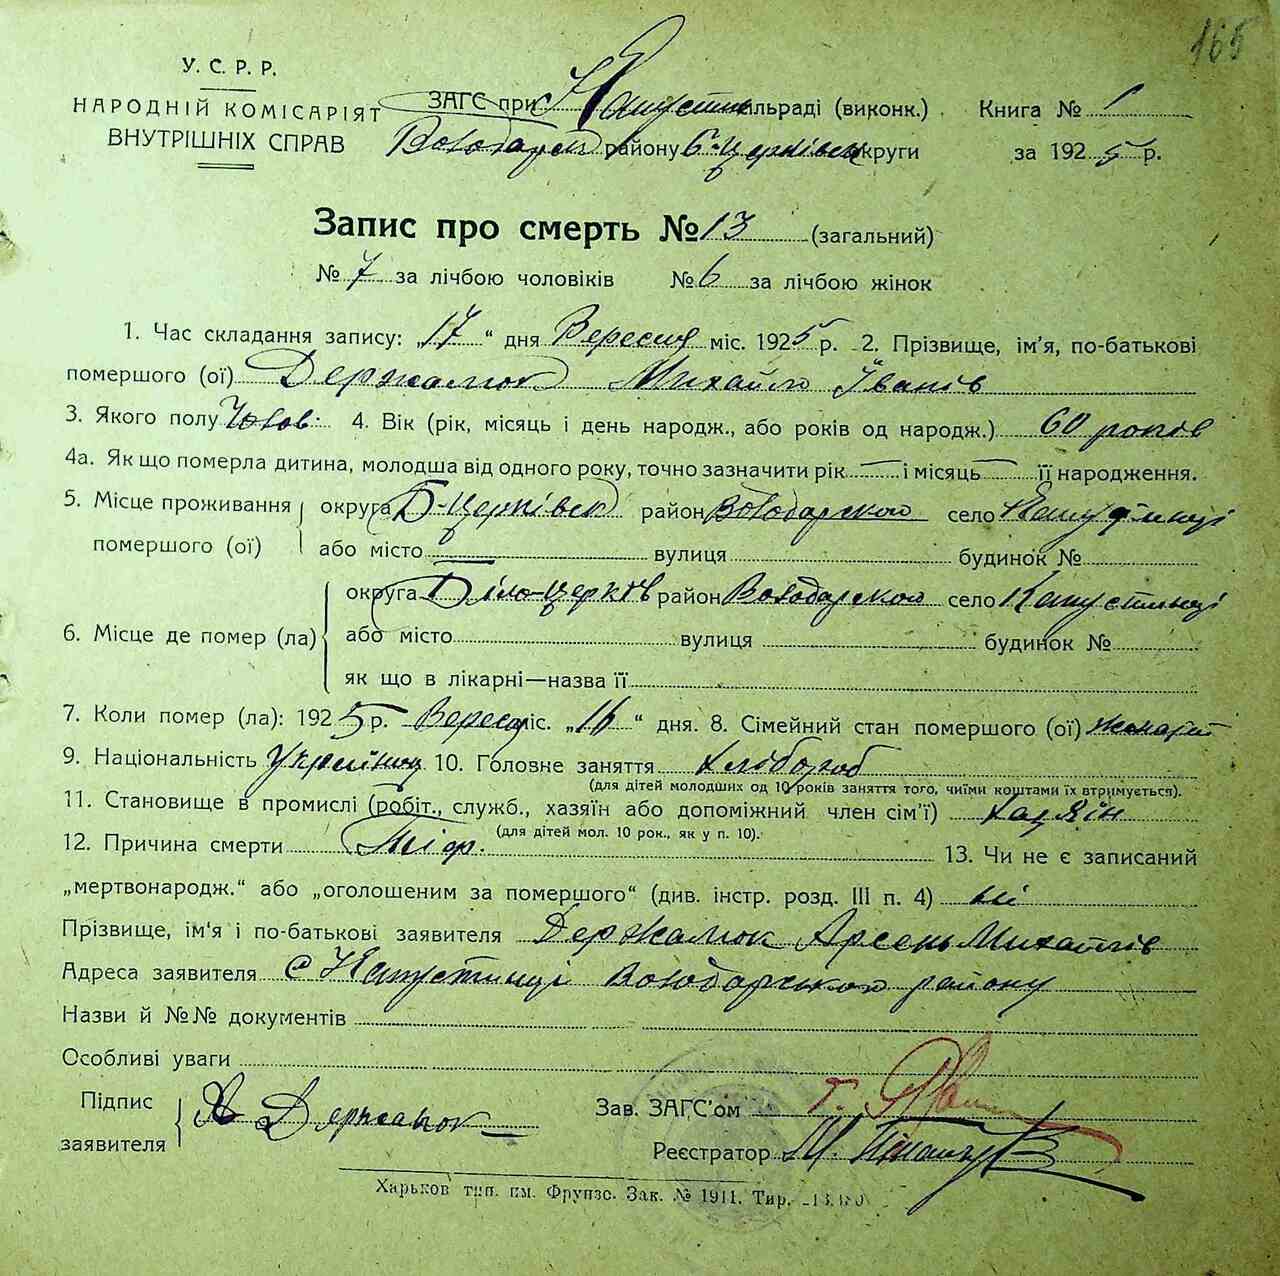 165
У. С. Р. Р.
НАРОДНІЙ КОМІСАРІЯТ
ВНУТРІШНІХ СПРАВ
ЗАГС при Капустин ільраді (виконк.)
Володарськ району Б-Церківськ округи
Книга № 1
за 1925 р.
Запис про смерть № 13 (загальний)
№ 7 за лічбою чоловіків № 6 за лічбою жінок
1. Час складання запису: „17“ дня Вересня міс. 1925 р. 2. Прізвище, ім'я, по-батькові
помершого (ої) Держамок Михайло Іванів
3. Якого полу Чолов. 4. Вік (рік, місяць і день народж., або років од народж.) 60 років
4а. Як що померла дитина, молодша від одного року, точно зазначити рік — і місяць — її народження.
5. Місце проживання округа Б-Церківськ район Володарського село Капустинці
помершого (ої) або місто — вулиця будинок №
округа Біло-Церків район Володарского село Капустинці
6. Місце де помер (ла) або місто вулиця будинок №
як що в лікарні—назва її
7. Коли помер (ла): 1925 р. Вересня міс. „16“ дня. 8. Сімейний стан помершого (ої) жонатий
9. Національність Українець 10. Головне заняття хлібороб
(для дітей молодших од 10 років заняття того, чиїми коштами їх втримується).
11. Становище в промислі (робіт., служб., хазяїн або допоміжний член сім'ї) хазяїн
(для дітей мол. 10 рок., як у п. 10).
12. Причина смерти Тіф. 13. Чи не є записаний
„мертвонародж.“ або „оголошеним за помершого“ (див. інстр. розд. III п. 4) ні
Прізвище, ім'я і по-батькові заявителя Держамок Арсень Михайлів
Адреса заявителя с Капустинці Володарського району
Назви й №№ документів
Особливі уваги
Підпис
заявителя Держамок
Зав. ЗАГС'ом
Реєстратор М.
Харьков тип. им. Фрунзе. Зак. № 1911. Тир.